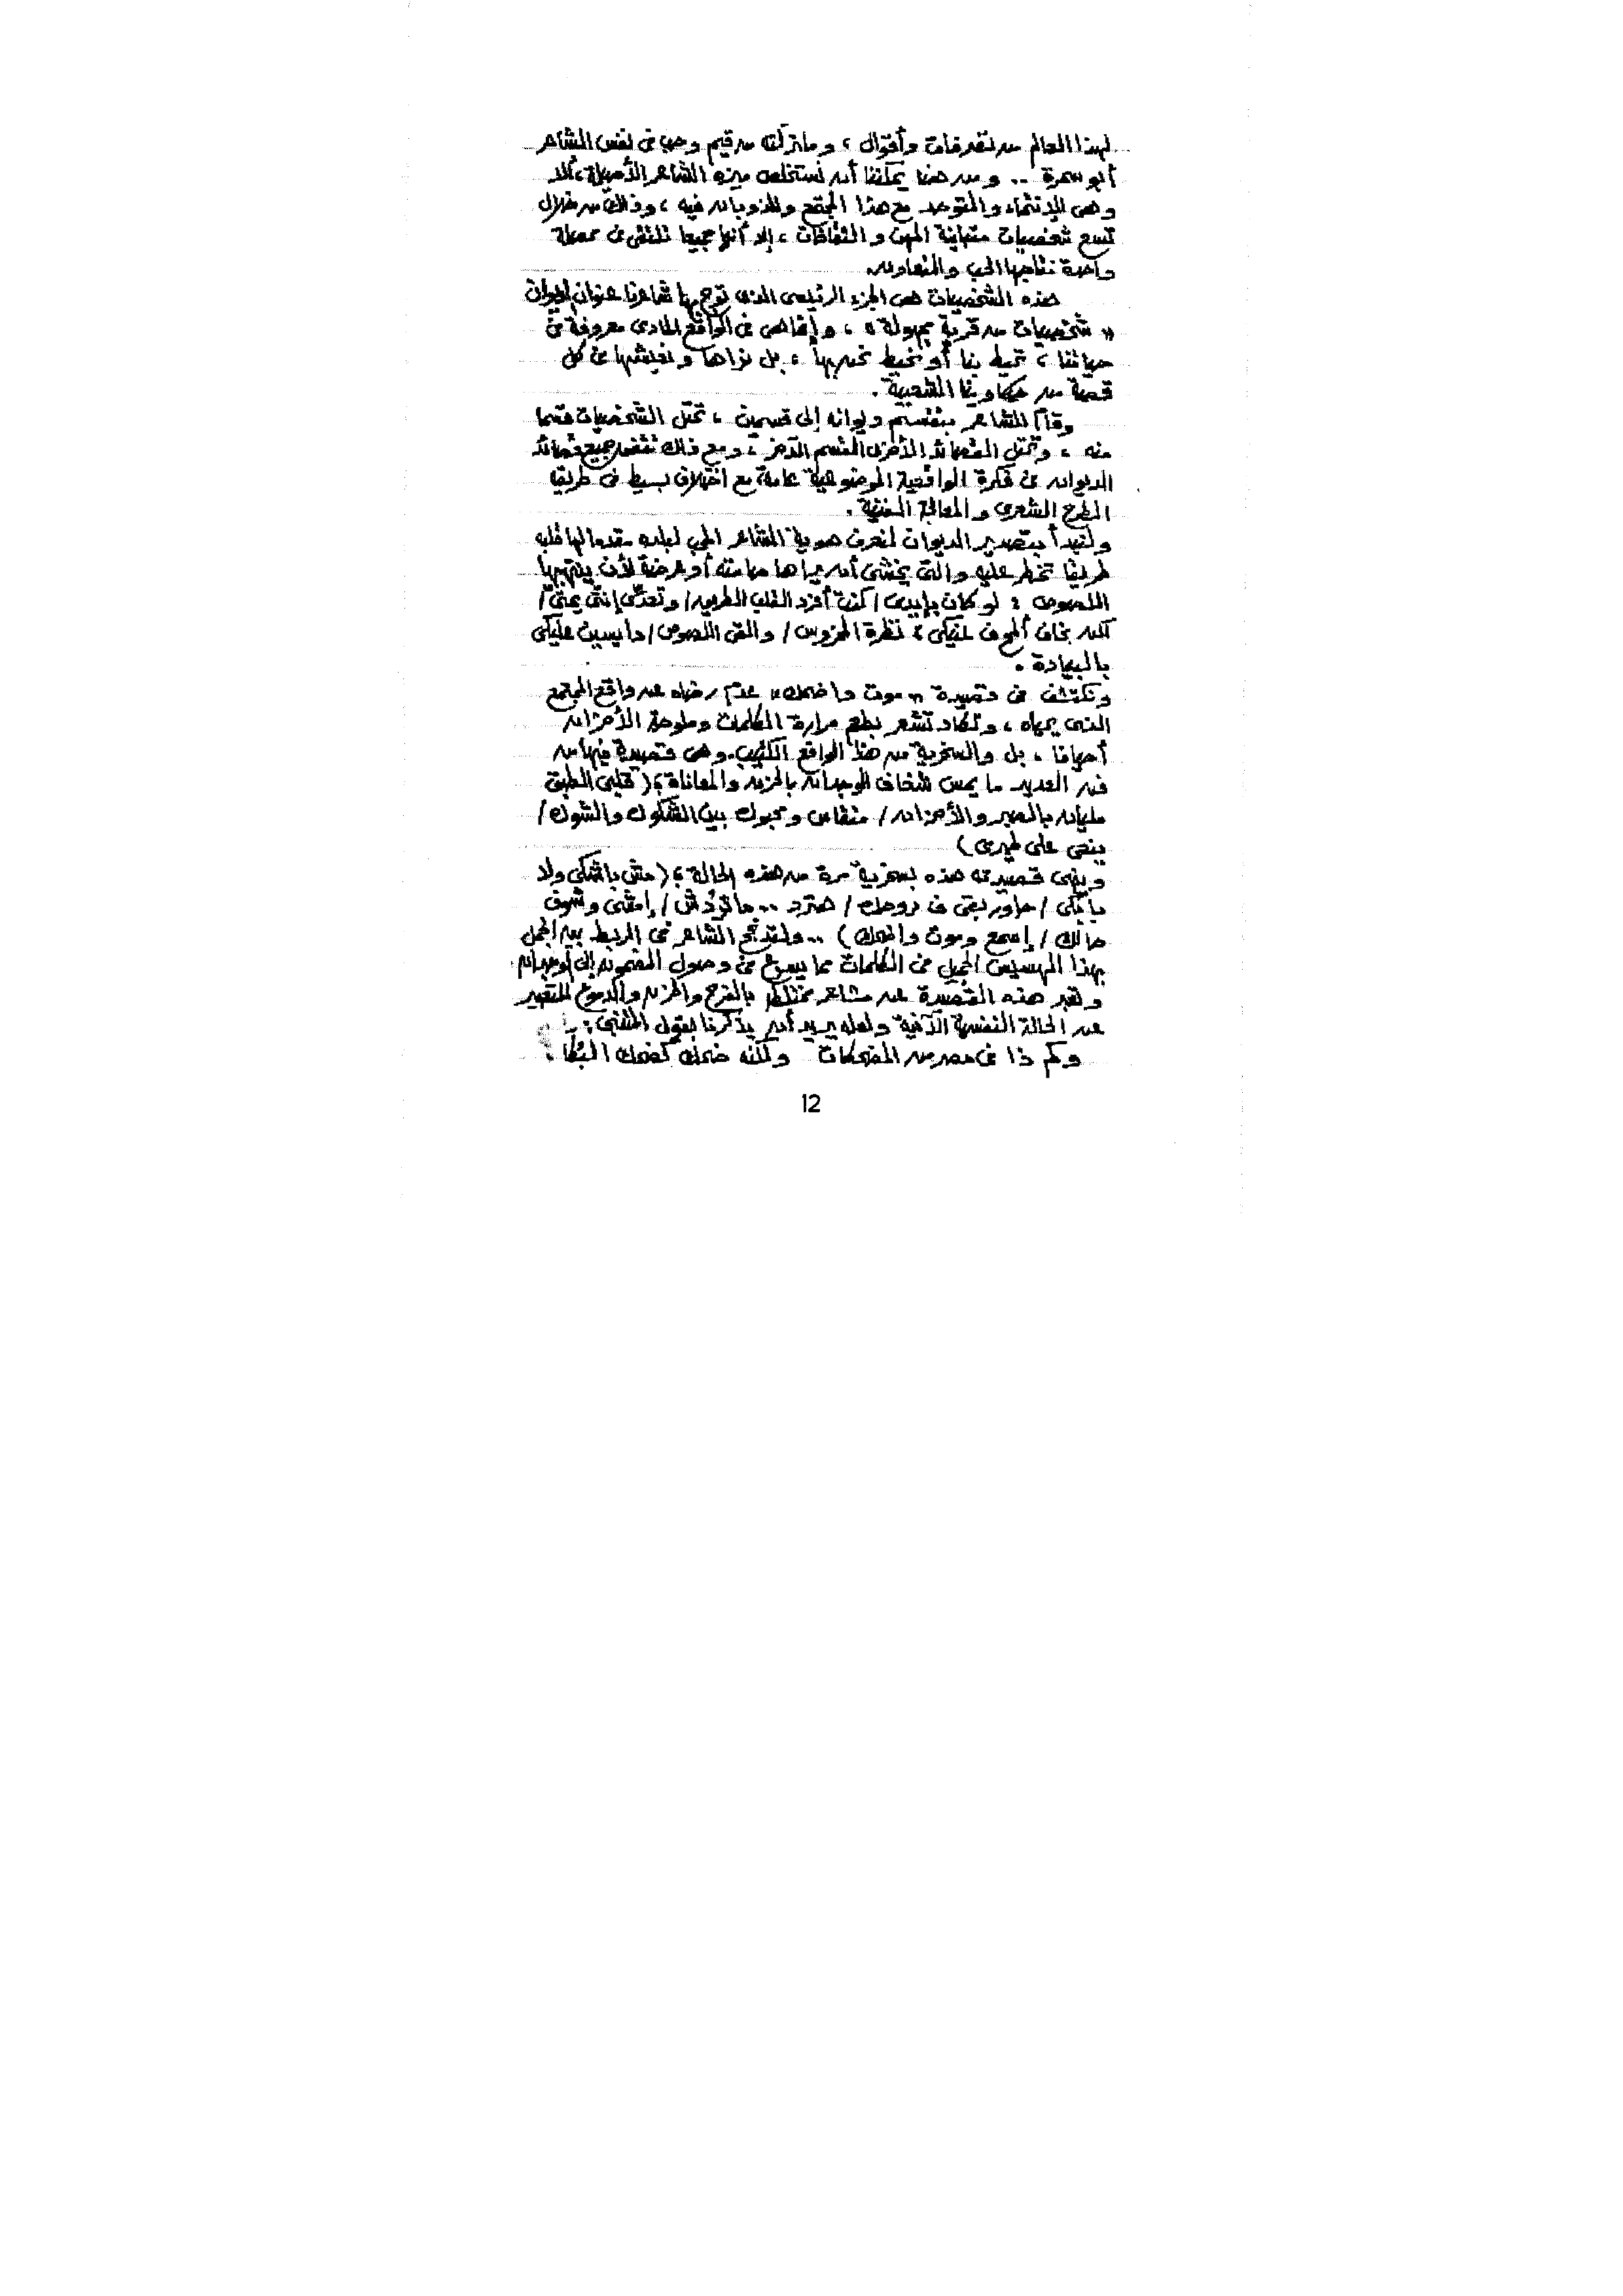 لهذا العالم من تصرفات وأقوال ، وما تركته من قيم وحب فى نفس الشاعر
أبو سمرة .. ومن هنا يمكننا أن نستخلص ميزة الشاعر الأصيلة ، ألا
وهى الإنتماء والتوحد مع هذا المجتمع والذوبان فيه ، وذلك من خلال
تسع شخصيات متباينة المهن والثقافات ، إلا أنها جميعا تلتقى فى محصلة
واحدة نتاجها الحب والتعاون
هذه الشخصيات هى الجزء الرئيسى الذى توج بها شاعرنا عنوان الديوان
« شخصيات من قرية مجهولة » ، وإنما هى فى الواقع المادى معروفة فى
حياتنا ، تحيط بنا أو نحيط نحن بها ، بل نراها ونعيشها فى كل
قصة من حكاوينا الشعبية .
وقام الشاعر بتقسيم ديوانه إلى قسمين ، تمثل الشخصيات قسما
منه ، وتمثل القصائد الأخرى القسم الآخر ، ومع ذلك جميع قصائد
الديوان فى فكرة الواقعية الموضوعية عامة مع اختلاف بسيط فى طريقة
الطرح الشعرى والمعالجة الفنية .
ولنبدأ بتصدير الديوان لنعرف هوية الشاعر المحب لبلده مقدما لها قلبه
طريقا تخطر عليه والتى يخشى أن يراها مهانة أو عرضة لأن ينتهبها
اللصوص : لو كان بإيدى / كنت أفرد القلب الطريق / وتعدّى إنتى يمتىّ /
لكن بخاف ألخوف عليكى ؛ نظرة المحروس / والقى اللصوص / دايسين عليكى
بالبيادة .
ونكتشف فى قصيدة « موت واضحك » عدم رضاه عن واقع المجتمع
الذى يحياه ، وتكاد تشعر بطعم مرارة الكلمات وملوحة الأحزان
أحيانا ، بل والسخرية من هذا الواقع الكئيب . وهى قصيدة فيها من
فن العديد ما يمس شغاف الوجدان بالحزن والمعاناة ؛ ( قلبى الطبق
مليان بالصبر والأحزان / منقاس ومحبوك بين الشكوك والشوك /
بنعى على طيرى )
وينهى قصيدته هذه بسخرية مرة من هذه الحالة ؛ ( مش باشكى ولا
بابكى / حاور بقى فى روحك / هترد .. ماتردش / إمشى وشوف
حالك / إسمع وموت واضحك ) .. ولقد نجح الشاعر فى الربط بين الجمل
بهذا الهسيس الجميل فى الكلمات مما يسرع فى وصول المضمون إلى الوجدان
وتعبر هذه القصيدة عن مشاعر مختلطة بالفرح والحزن والدموع للتعبير
عن الحالة النفسية الآنية ولعله يريد أن يذكرنا بقول المتنبى :
وكم ذا فى مصر من المضحكات ولكنه ضحك كضحك البُكا .
12